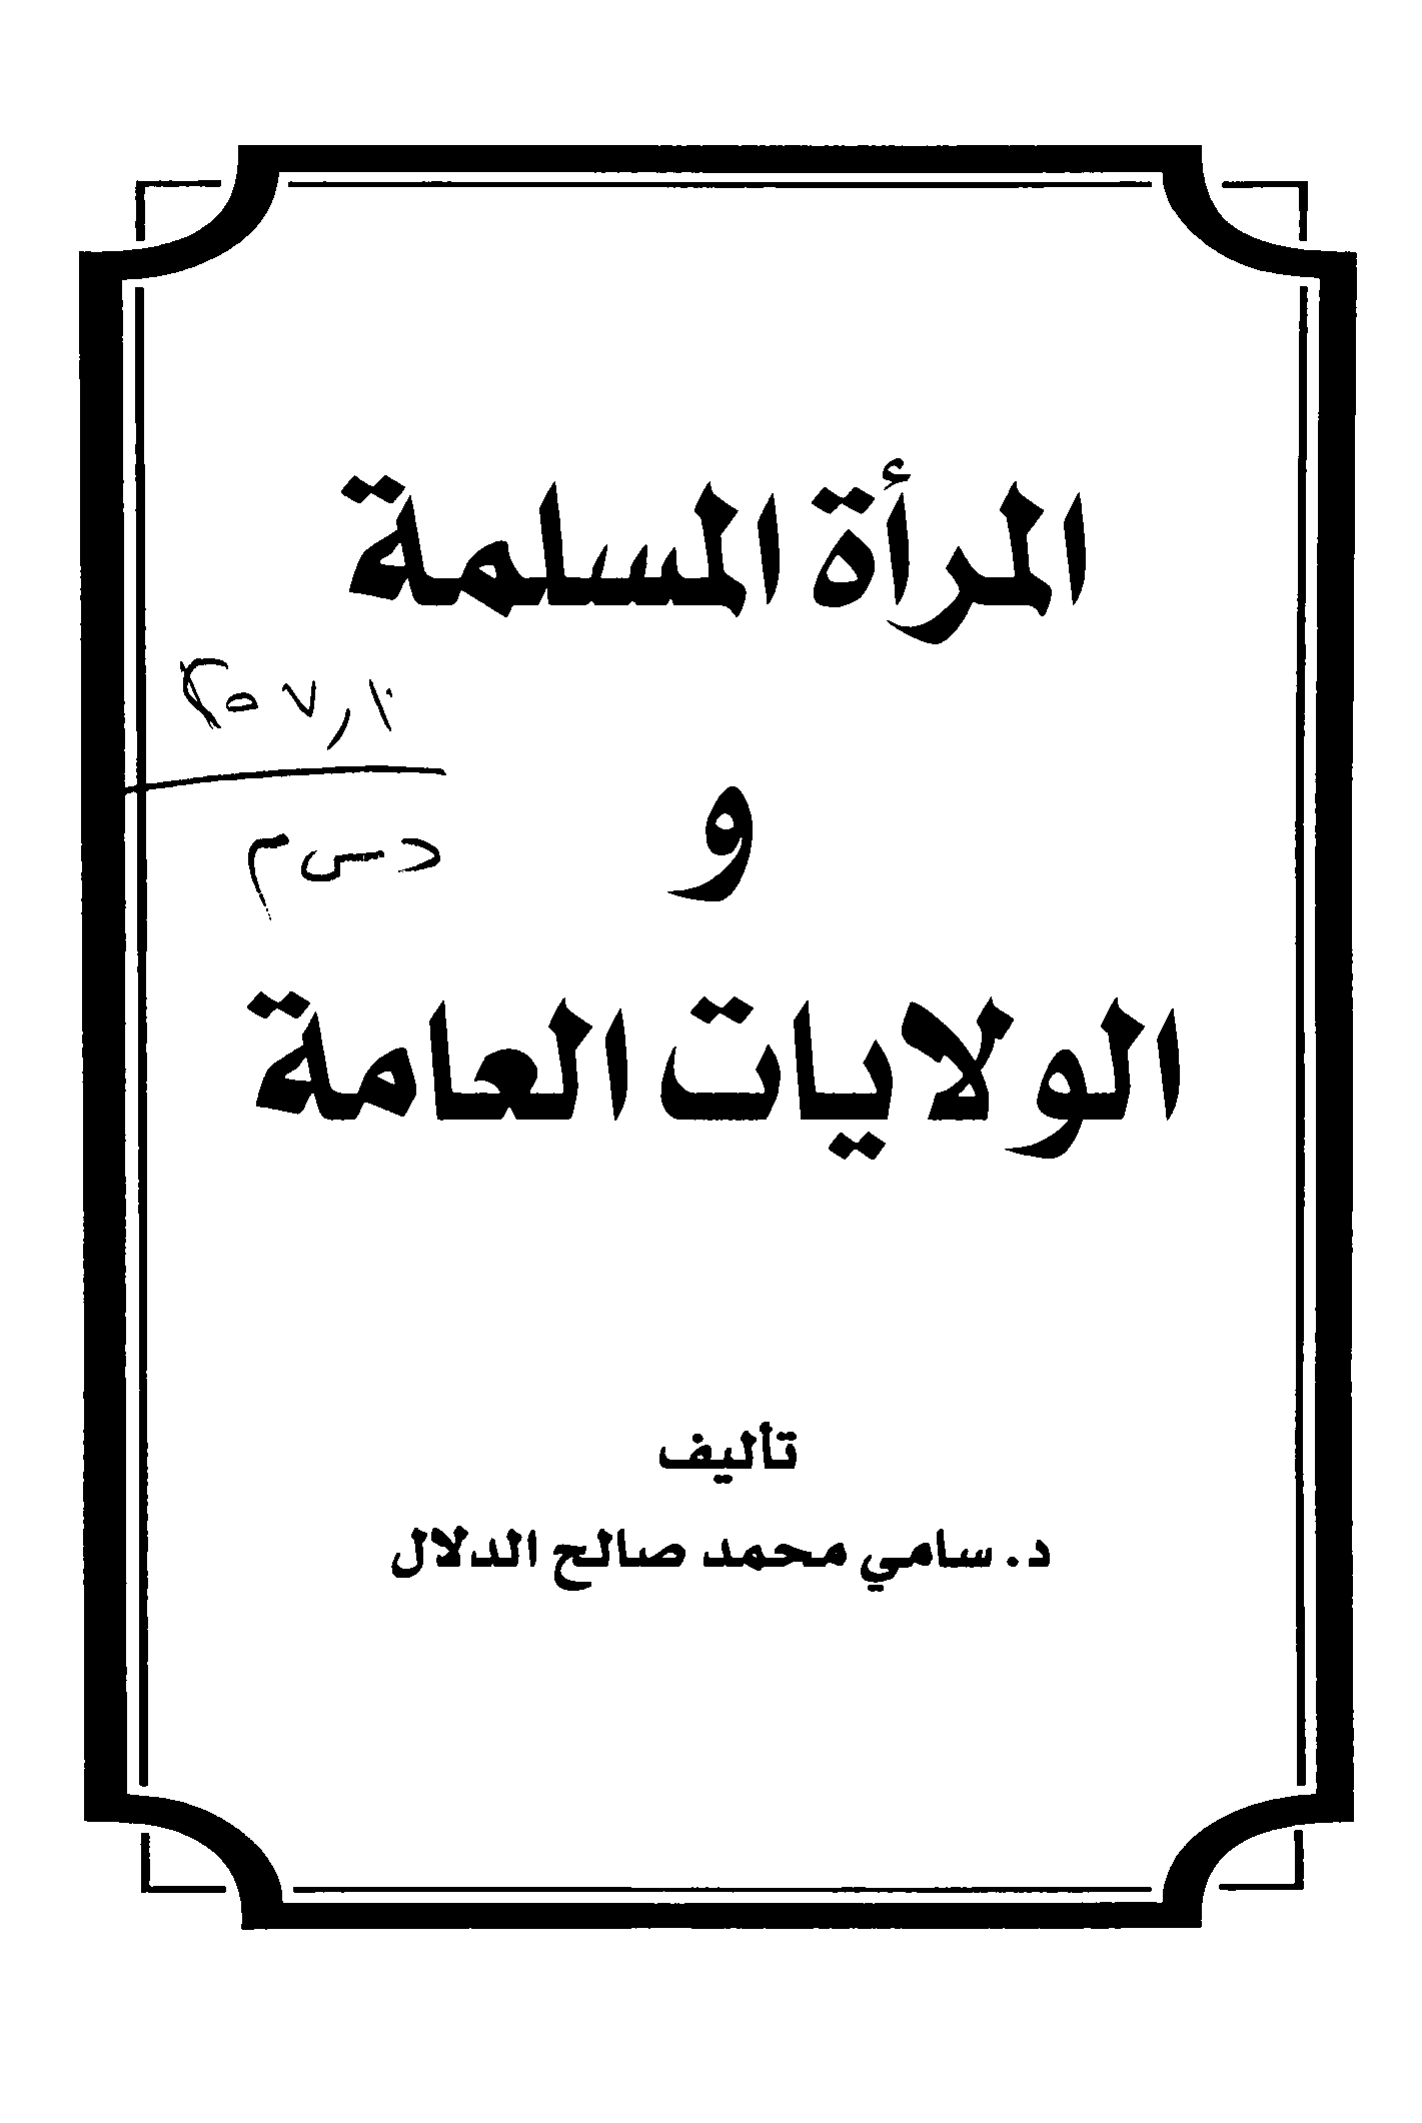 المرأة المسلمة
و
الولايات العامة
د س م
تأليف
د. سامي محمد صالح الدلال